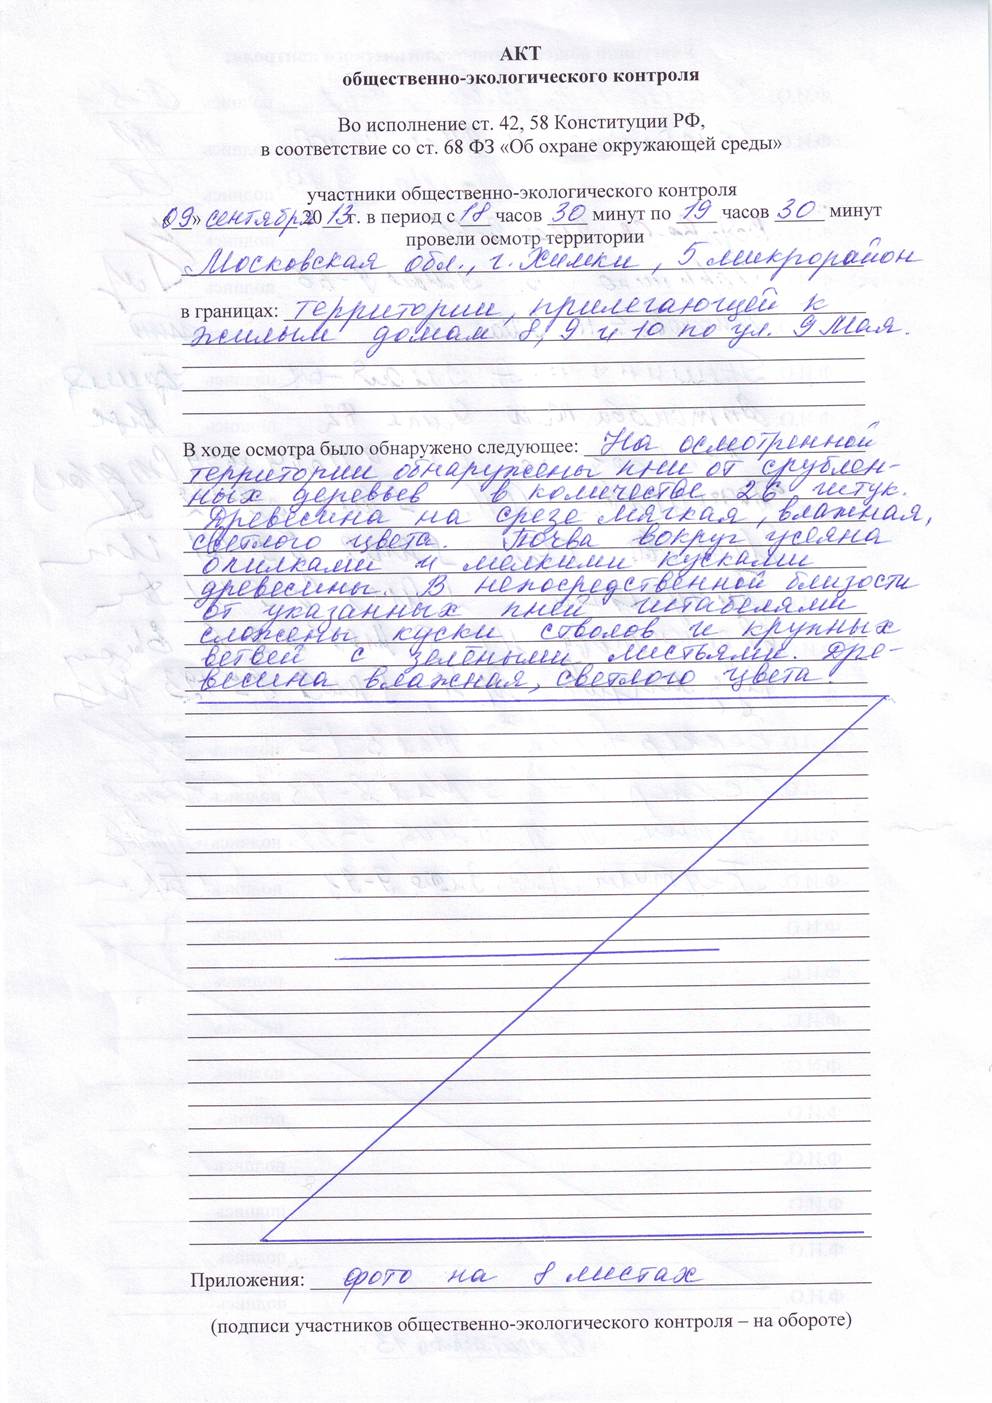 АКТ
общественно-экологического контроля
Во исполнение ст. 42, 58 Конституции РФ,
в соответствие со ст. 68 ФЗ «Об охране окружающей среды»
участники общественно-экологического контроля
«09» сентября 2013 г. в период с 18 часов 30 минут по 19 часов 30 минут
провели осмотр территории
Московская обл., г. Химки, 5 микрорайон
в границах: территории, прилегающей к
жилым домам 8, 9 и 10 по ул. 9 Мая.
В ходе осмотра было обнаружено следующее: На осмотренной
территории обнаружены пни от срублен-
ных деревьев в количестве 26 штук.
Древесина на срезе мягкая, влажная,
светлого цвета. Почва вокруг усеяна
опилками и мелкими кусками
древесины. В непосредственной близости
от указанных пней штабелями
сложены куски стволов и крупных
ветвей с зелёными листьями. Дре-
весина влажная, светлого цвета.
Приложения: фото на 8 листах
(подписи участников общественно-экологического контроля – на обороте)